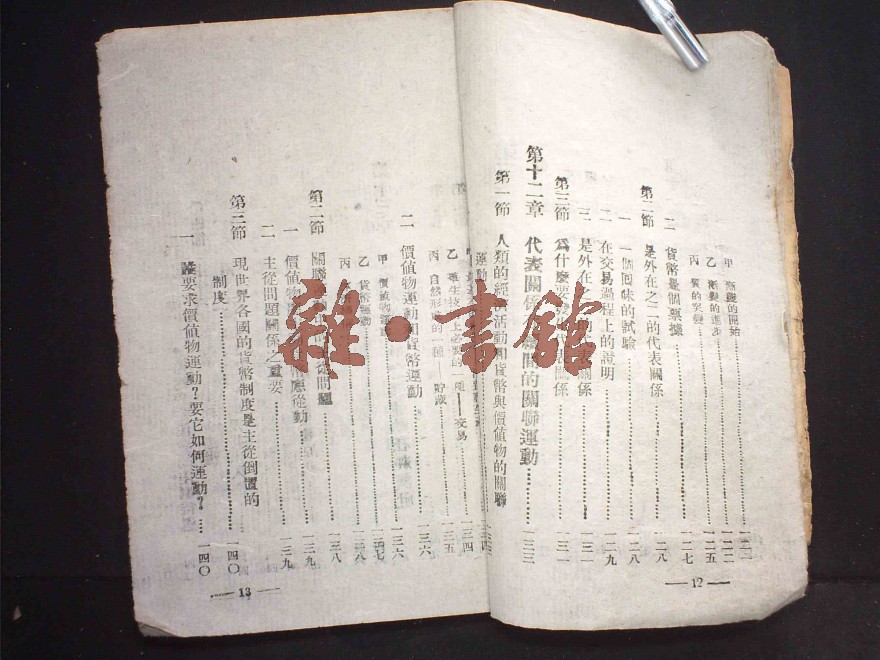 甲 漸變的開始……一二一
乙 漸變的進步……一二二
丙 質的突變……一二五
二 貨幣是個票據……一二七
第二節 是外在之二的代表關係……一二八
一 一個回味的試驗……一二八
二 在交易過程上的證明……一二九
三 是外在……的代表關係……一三一
第三節 爲什麼要……代表關係……一三一
第十二章 代表關係……間的關聯運動……一三三
第一節 人類的經濟活動和貨幣與價值物的關聯
運動
乙 ……一種——交易……一三四
丙 自然形態的一種——貯藏……一三五
二 價值物運動和貨幣運動……一三六
甲 價值物運動……一三六
乙 貨幣運動
丙……一三八
第二節 關聯……主從問題……一三八
一 價值物……應從動……一三九
二 主從問題關係之重要……一三九
第三節 現世界各國的貨幣制度是主從倒置的
制度……一四〇
一 誰要求價值物運動？要它如何運動？……一四〇
—12—
—13—
雜·書館